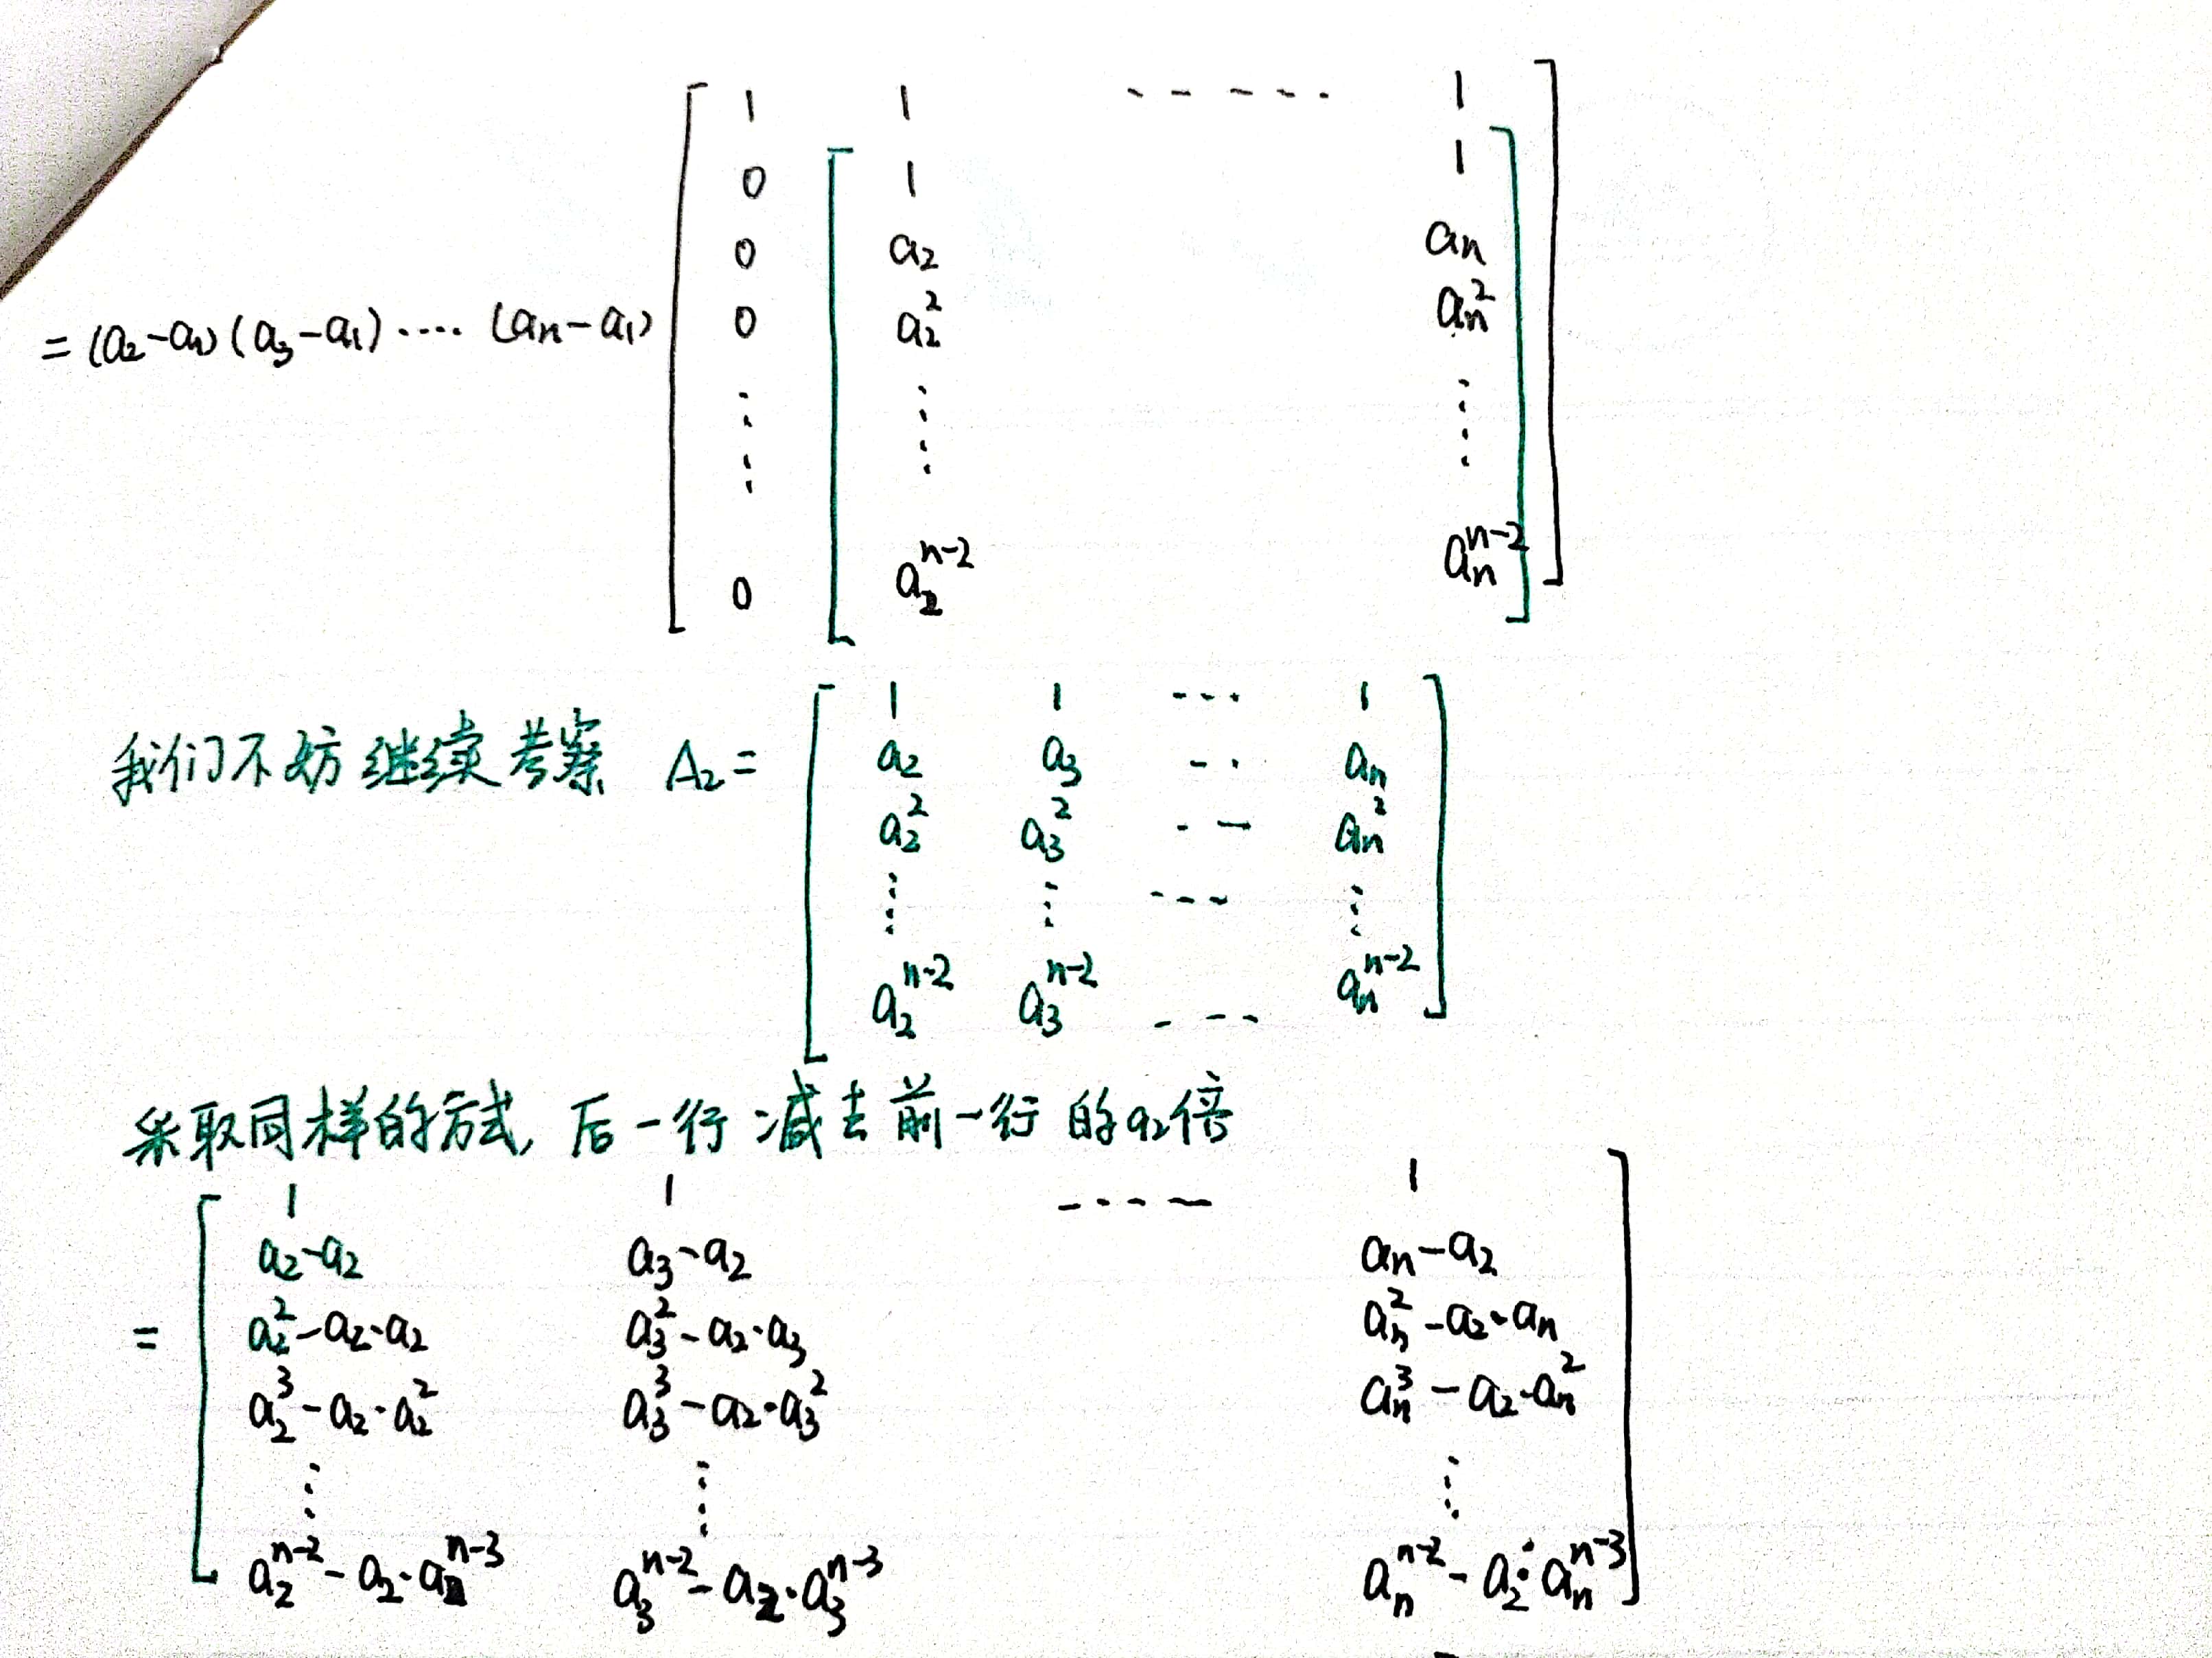 1 1 ----- 1
0 1 1
0 a₂ aₙ
= (a₂-a₁)(a₃-a₁)····(aₙ-a₁) 0 a₂² aₙ²
⋮ ⋮ ⋮
0 a₂ⁿ⁻² aₙⁿ⁻²
1 1 --- 1
我们不妨继续考察 A₂= a₂ a₃ -- aₙ
a₂² a₃² -- aₙ²
⋮ ⋮ --- ⋮
a₂ⁿ⁻² a₃ⁿ⁻² --- aₙⁿ⁻²
采取同样的方式, 后一行减去前一行的a₂倍
1 1 ---- 1
a₂-a₂ a₃-a₂ aₙ-a₂
= a₂²-a₂·a₂ a₃²-a₂·a₃ aₙ²-a₂·aₙ
a₂³-a₂·a₂² a₃³-a₂·a₃² aₙ³-a₂·aₙ²
⋮ ⋮ ⋮
a₂ⁿ⁻²-a₂·a₂ⁿ⁻³ a₃ⁿ⁻²-a₂·a₃ⁿ⁻³ aₙⁿ⁻²-a₂·aₙⁿ⁻³